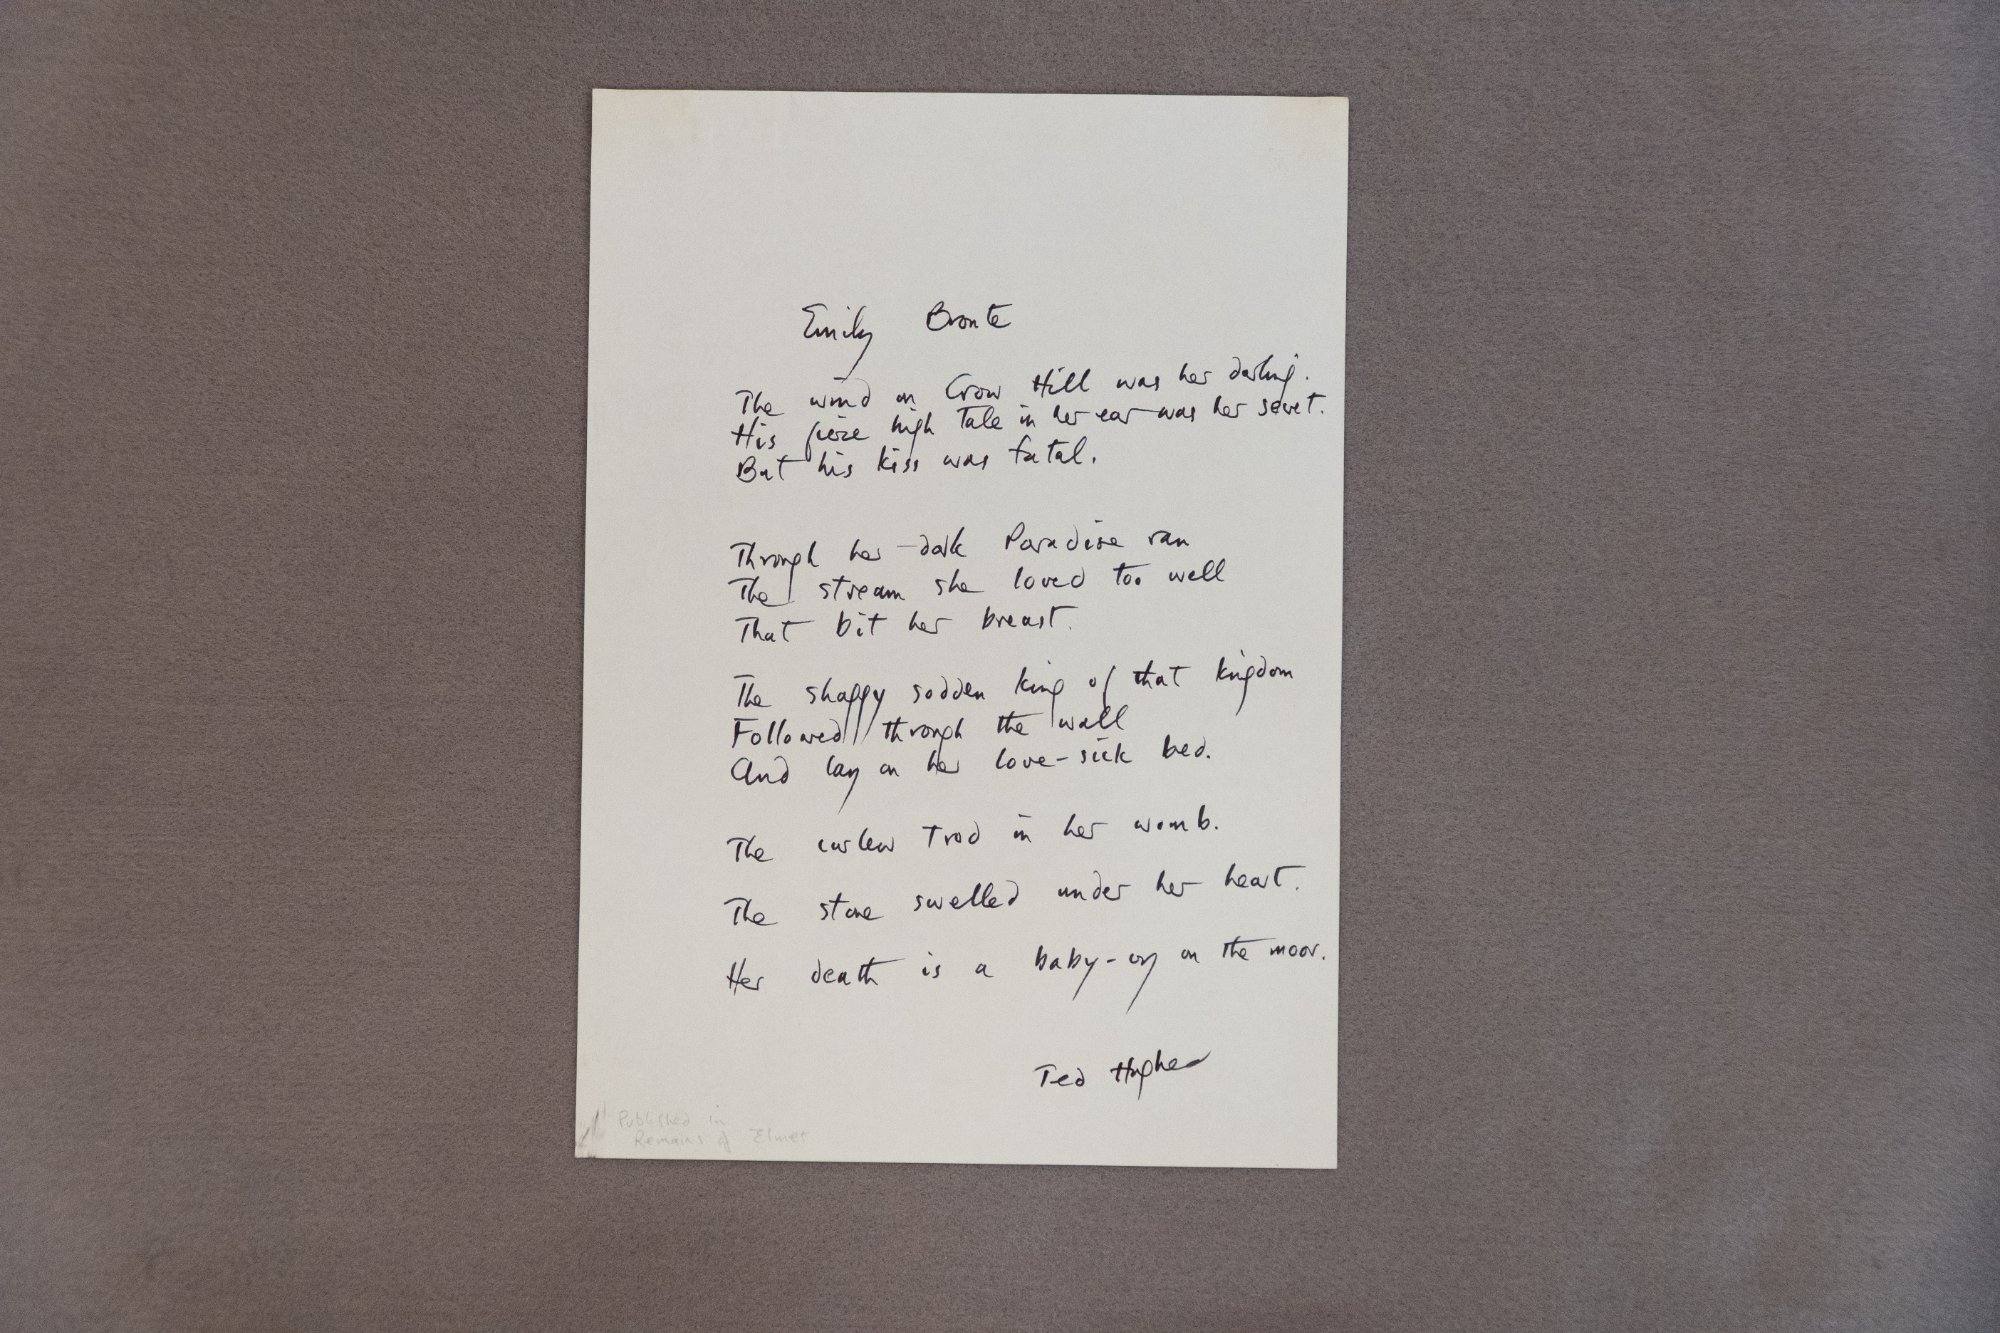 Emily Bronte
The wind on Crow Hill was her darling.
His fierce high Tale in her ear was her secret.
But his kiss was fatal.
Through her dark Paradise ran
The stream she loved too well
That bit her breast.
The shaggy sodden king of that kingdom
Followed through the wall
And lay on her love-sick bed.
The curlew trod in her womb.
The stone swelled under her heart.
Her death is a baby-cry on the moor.
Ted Hughes
Published in
Remains of Elmet